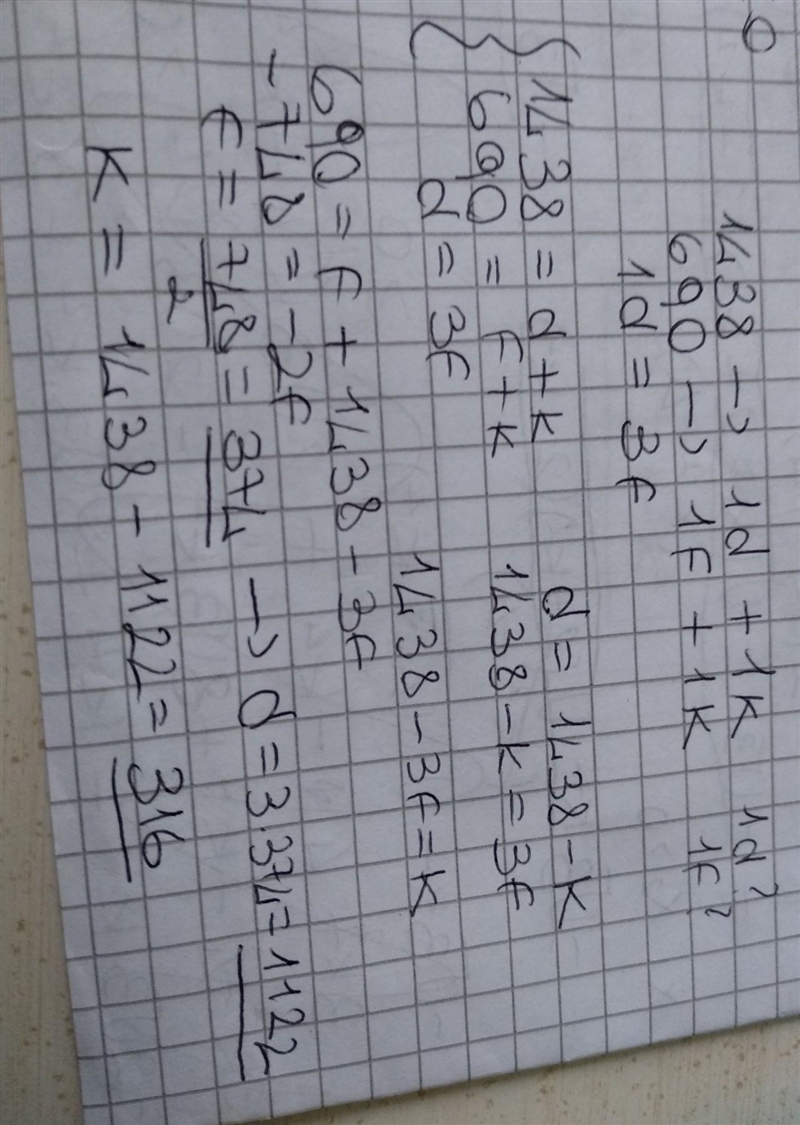 1438 → 1d + 1K 1d?
690 → 1F + 1K 1F?
1d = 3F
1438 = d+K d = 1438 - K
690 = F+K 1438 - K = 3F
d = 3F 1438 - 3F = K
690 = F + 1438 - 3F
-748 = -2F
F = 748/2 = 374 → d = 3.374 = 1122
K = 1438 - 1122 = 316